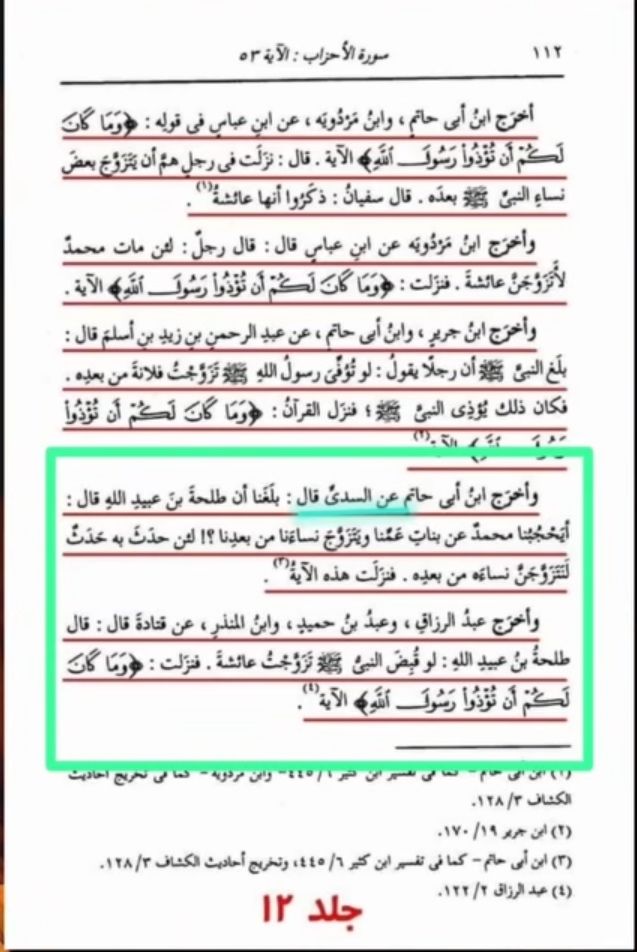 ١١٢
سورة الأحزاب : الآية ٥٣
أخرَج ابنُ أبى حاتمٍ ، وابنُ مَرْدُويَه ، عن ابنِ عباسٍ فى قولِه : ﴿وَمَا كَانَ
لَكُمْ أَن تُؤْذُوا رَسُولَ اللَّهِ﴾ الآية . قال : نزَلَت فى رجلٍ همَّ أن يَتَزَوَّجَ بعضَ
نساءِ النبىِّ ﷺ بعدَه . قال سفيانُ : ذكَرُوا أنها عائشةُ(١) .
وأخرَج ابنُ مَرْدُويَه عن ابنِ عباسٍ قال : قال رجلٌ : لئن مات محمدٌ
لأَتَزَوَّجَنَّ عائشةَ . فنزلت : ﴿وَمَا كَانَ لَكُمْ أَن تُؤْذُوا رَسُولَ اللَّهِ﴾ الآية .
وأخرَج ابنُ جريرٍ ، وابنُ أبى حاتمٍ ، عن عبدِ الرحمنِ بنِ زيدِ بنِ أسلمَ قال :
بلَغ النبىَّ ﷺ أن رجلًا يقولُ : لو تُوُفِّىَ رسولُ اللهِ ﷺ تزَوَّجْتُ فلانةَ من بعدِه .
فكان ذلك يُؤْذِى النبىَّ ﷺ ؛ فنزَل القرآنُ : ﴿وَمَا كَانَ لَكُمْ أَن تُؤْذُوا
رَسُولَ اللَّهِ﴾ الآية(٢)
وأخرَج ابنُ أبى حاتمٍ عن السدىِّ قال : بلَغَنا أن طلحةَ بنَ عبيدِ اللهِ قال :
أيَحْجُبُنا محمدٌ عن بناتِ عَمِّنا ويَتَزَوَّجُ نساءَنا من بعدِنا ؟! لئن حدَث به حَدَثٌ
لَنَتَزَوَّجَنَّ نساءَه من بعدِه . فنزَلَت هذه الآيةُ(٣) .
وأخرَج عبدُ الرزاقِ ، وعبدُ بنُ حميدٍ ، وابنُ المنذرِ ، عن قتادةَ قال : قال
طلحةُ بنُ عبيدِ اللهِ : لو قُبِضَ النبىُّ ﷺ تزَوَّجْتُ عائشةَ . فنزلت : ﴿وَمَا كَانَ
لَكُمْ أَن تُؤْذُوا رَسُولَ اللَّهِ﴾ الآية(٤) .
(١) ابن أبى حاتم - كما فى تفسير ابن كثير ٦/ ٤٤٥- وابن مردويه - كما فى تخريج أحاديث
الكشاف ٣/ ١٢٨.
(٢) ابن جرير ١٩/ ١٧٠.
(٣) ابن أبى حاتم - كما فى تفسير ابن كثير ٦/ ٤٤٥، وتخريج أحاديث الكشاف ٣/ ١٢٨.
(٤) عبد الرزاق ٢/ ١٢٢.
جلد ١٢